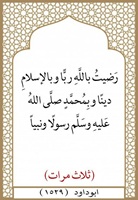 رَضيتُ باللَّهِ ربًّا و بالإسلامِ
دينًا و بِمُحمَّدٍ صلَّى اللهُ
عَليهِ وسَلَّم رسولًا ونبياً
(ثلاث مرات)
ابوداود (١٥٢٩)